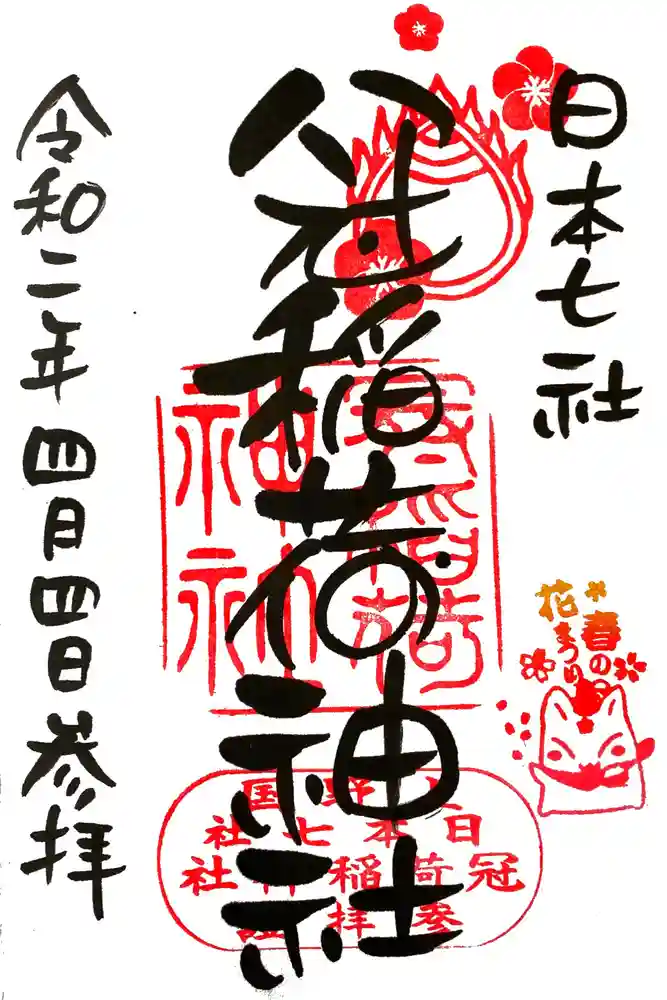 日本七社
冠稲荷神社
令和二年四月四日参拝
春の
花まつり
上野国
日本七社
冠稲荷神社
参拝證